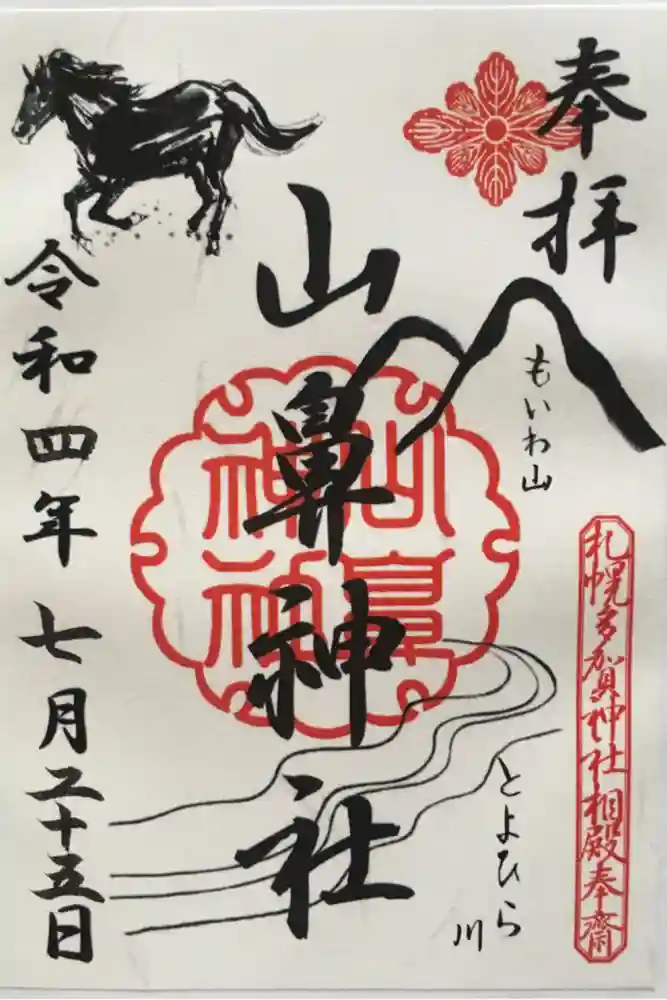 奉拝
もいわ山
札幌多賀神社相殿奉齋
とよひら
川
山鼻神社
山鼻
神社
令和四年七月二十五日